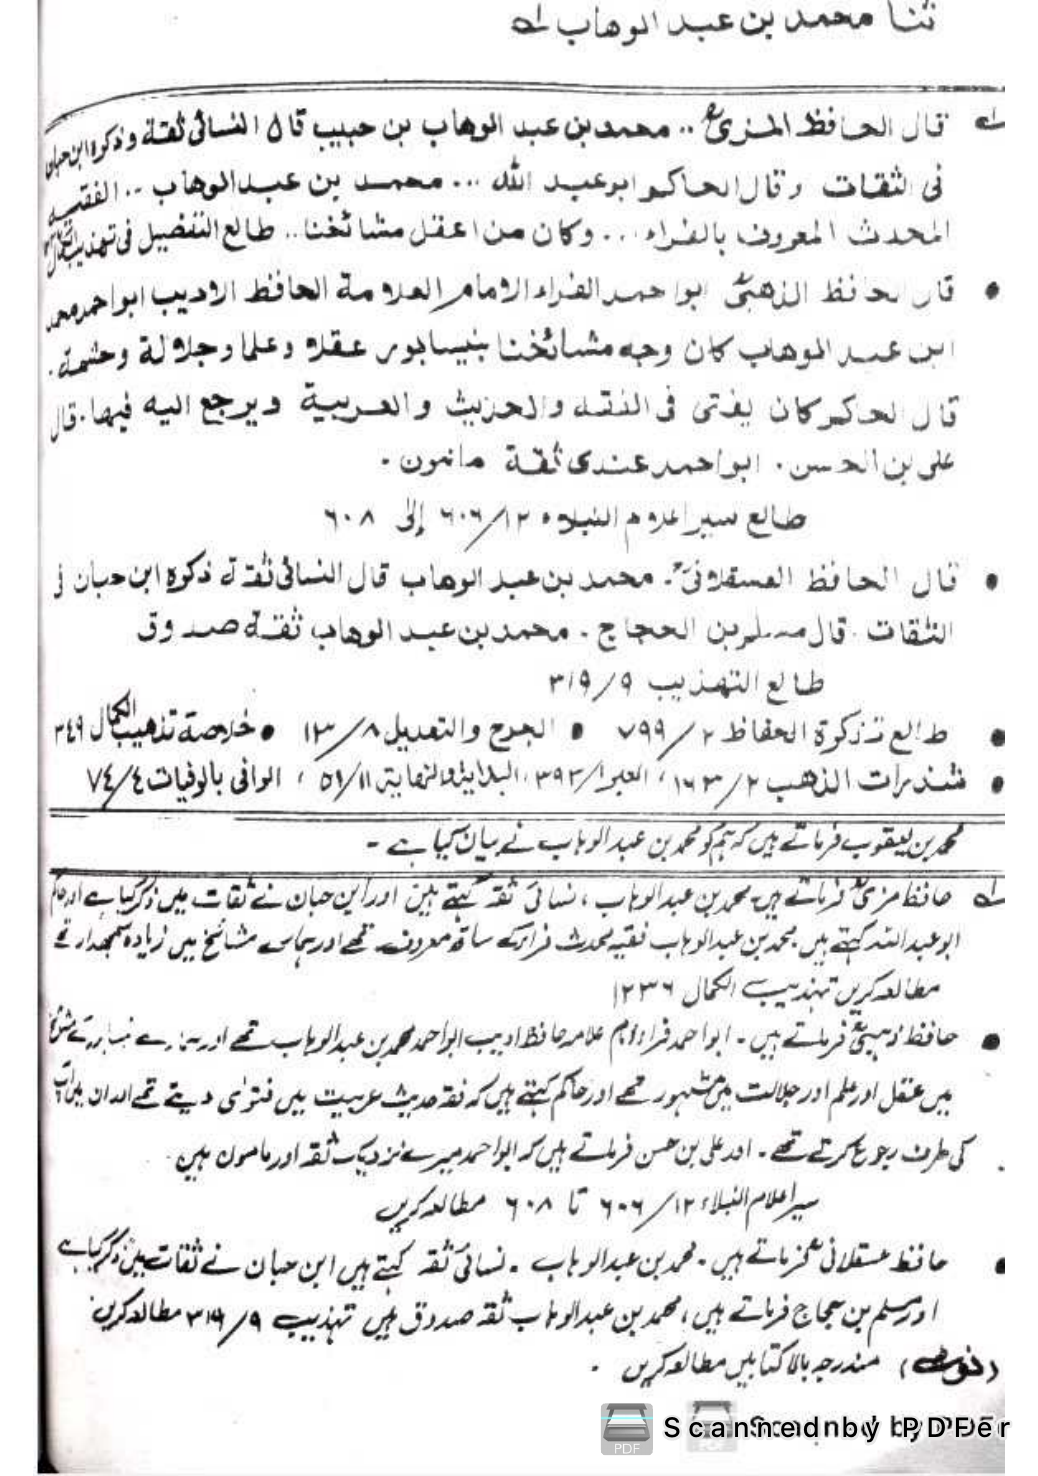 ثنا محمد بن عبد الوهاب لـه
لـه قال الحافظ المزیؒ .. محمد بن عبد الوهاب بن حبیب قال النسائی ثقة و ذکره ابن حبان
فی الثقات وقال الحاکم ابو عبد الله ... محمد بن عبد الوهاب .. الفقیه
المحدث المعروف بالفراء ... وکان من اعقل مشائخنا .. طالع التفضیل فی تهذیب الکمال
• قال الحافظ الذهبیؒ ابو احمد الفراء الامام العلامة الحافظ الادیب ابو احمد محمد
ابن عبد الوهاب کان وجه مشائخنا بنیسابور عقلا وعلما وجلالة وحشمة.
قال الحاکم کان یفتی فی الفقه والحدیث والعربیة ویرجع الیه فیها. قال
علی بن الحسن. ابو احمد عندی ثقة مامون.
طالع سیر اعلام النبلاء ۶۰۶/۱۲ إلى ۶۰۸
• قال الحافظ العسقلانیؒ. محمد بن عبد الوهاب قال النسائی ثقة ذکره ابن حبان فی
الثقات. قال مسلم بن الحجاج. محمد بن عبد الوهاب ثقة صدوق
طالع التهذیب ۳۱۹/۹
• طالع تذکرة الحفاظ ۷۹۹/۲ • الجرح والتعدیل ۱۳/۸ • خلاصة تذهیب الکمال ۳۴۹
• شذرات الذهب ۱۶۳/۲، العبر ۳۹۳/۱، البدایة والنهایة ۵۱/۱۱، الوافی بالوفیات ۷۴/۴
محمد بن یعقوب فرماتے ہیں کہ ہم کو محمد بن عبد الوہاب نے بیان کیا ہے -
لـه حافظ مزیؒ فرماتے ہیں محمد بن عبد الوہاب، نسائی ثقہ کہتے ہیں اور ابن حبان نے ثقات میں ذکر کیا ہے اور حاکم
ابو عبد اللہ کہتے ہیں محمد بن عبد الوہاب فقیہ محدث فراء کے ساتھ معروف تھے اور ہمارے مشائخ میں زیادہ سمجھدار تھے
مطالعہ کریں تہذیب الکمال ۱۲۳۶
• حافظ ذہبیؒ فرماتے ہیں - ابو احمد فراء امام علامہ حافظ ادیب ابو احمد محمد بن عبد الوہاب تھے اور ہمارے نیسابور کے شیوخ
میں عقل اور علم اور جلالت میں مشہور تھے اور حاکم کہتے ہیں کہ فقہ حدیث عربیت میں فتوٰی دیتے تھے اور ان میں آپ
کی طرف رجوع کرتے تھے - اور علی بن حسن فرماتے ہیں کہ ابو احمد میرے نزدیک ثقہ اور مامون ہیں.
سیر اعلام النبلاء ۶۰۶/۱۲ تا ۶۰۸ مطالعہ کریں
• حافظ عسقلانیؒ فرماتے ہیں - محمد بن عبد الوہاب - نسائی ثقہ کہتے ہیں ابن حبان نے ثقات میں ذکر کیا ہے
اور مسلم بن حجاج فرماتے ہیں، محمد بن عبد الوہاب ثقہ صدوق ہیں تہذیب ۳۱۹/۹ مطالعہ کریں
(نوٹ) مندرجہ بالا کتابیں مطالعہ کریں -
Scanned by PDFer